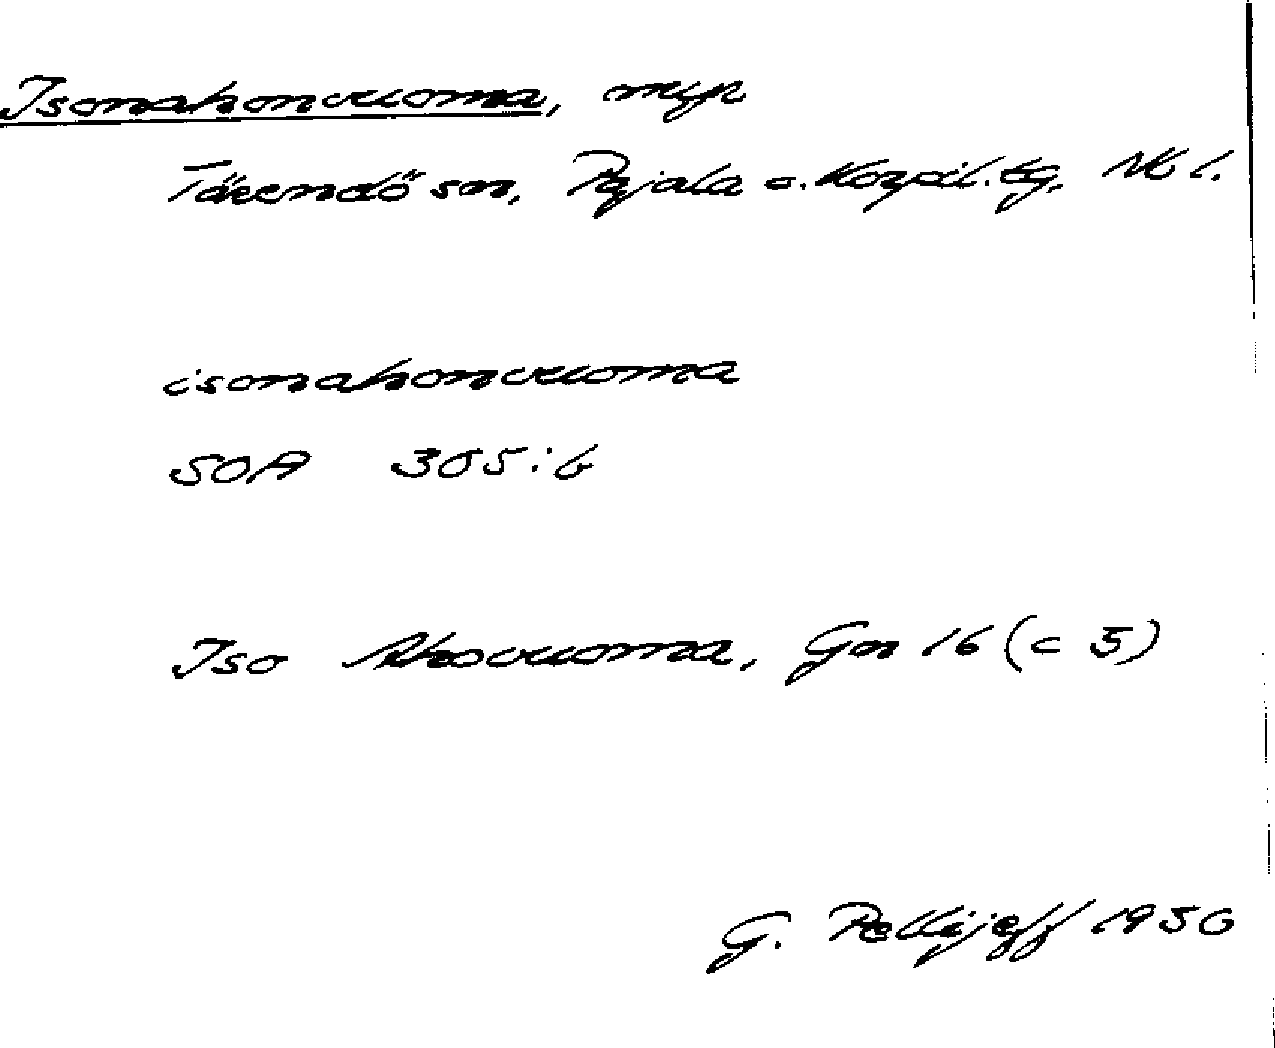 Isonahonvuoma, myr
Tärendö sn, Pajala o. Korpil. tg, Nb l.
isonahonvuoma
SOA 305:6
Iso Ahovuoma, Gn 16 (c 5)
G. Pellijeff 1950